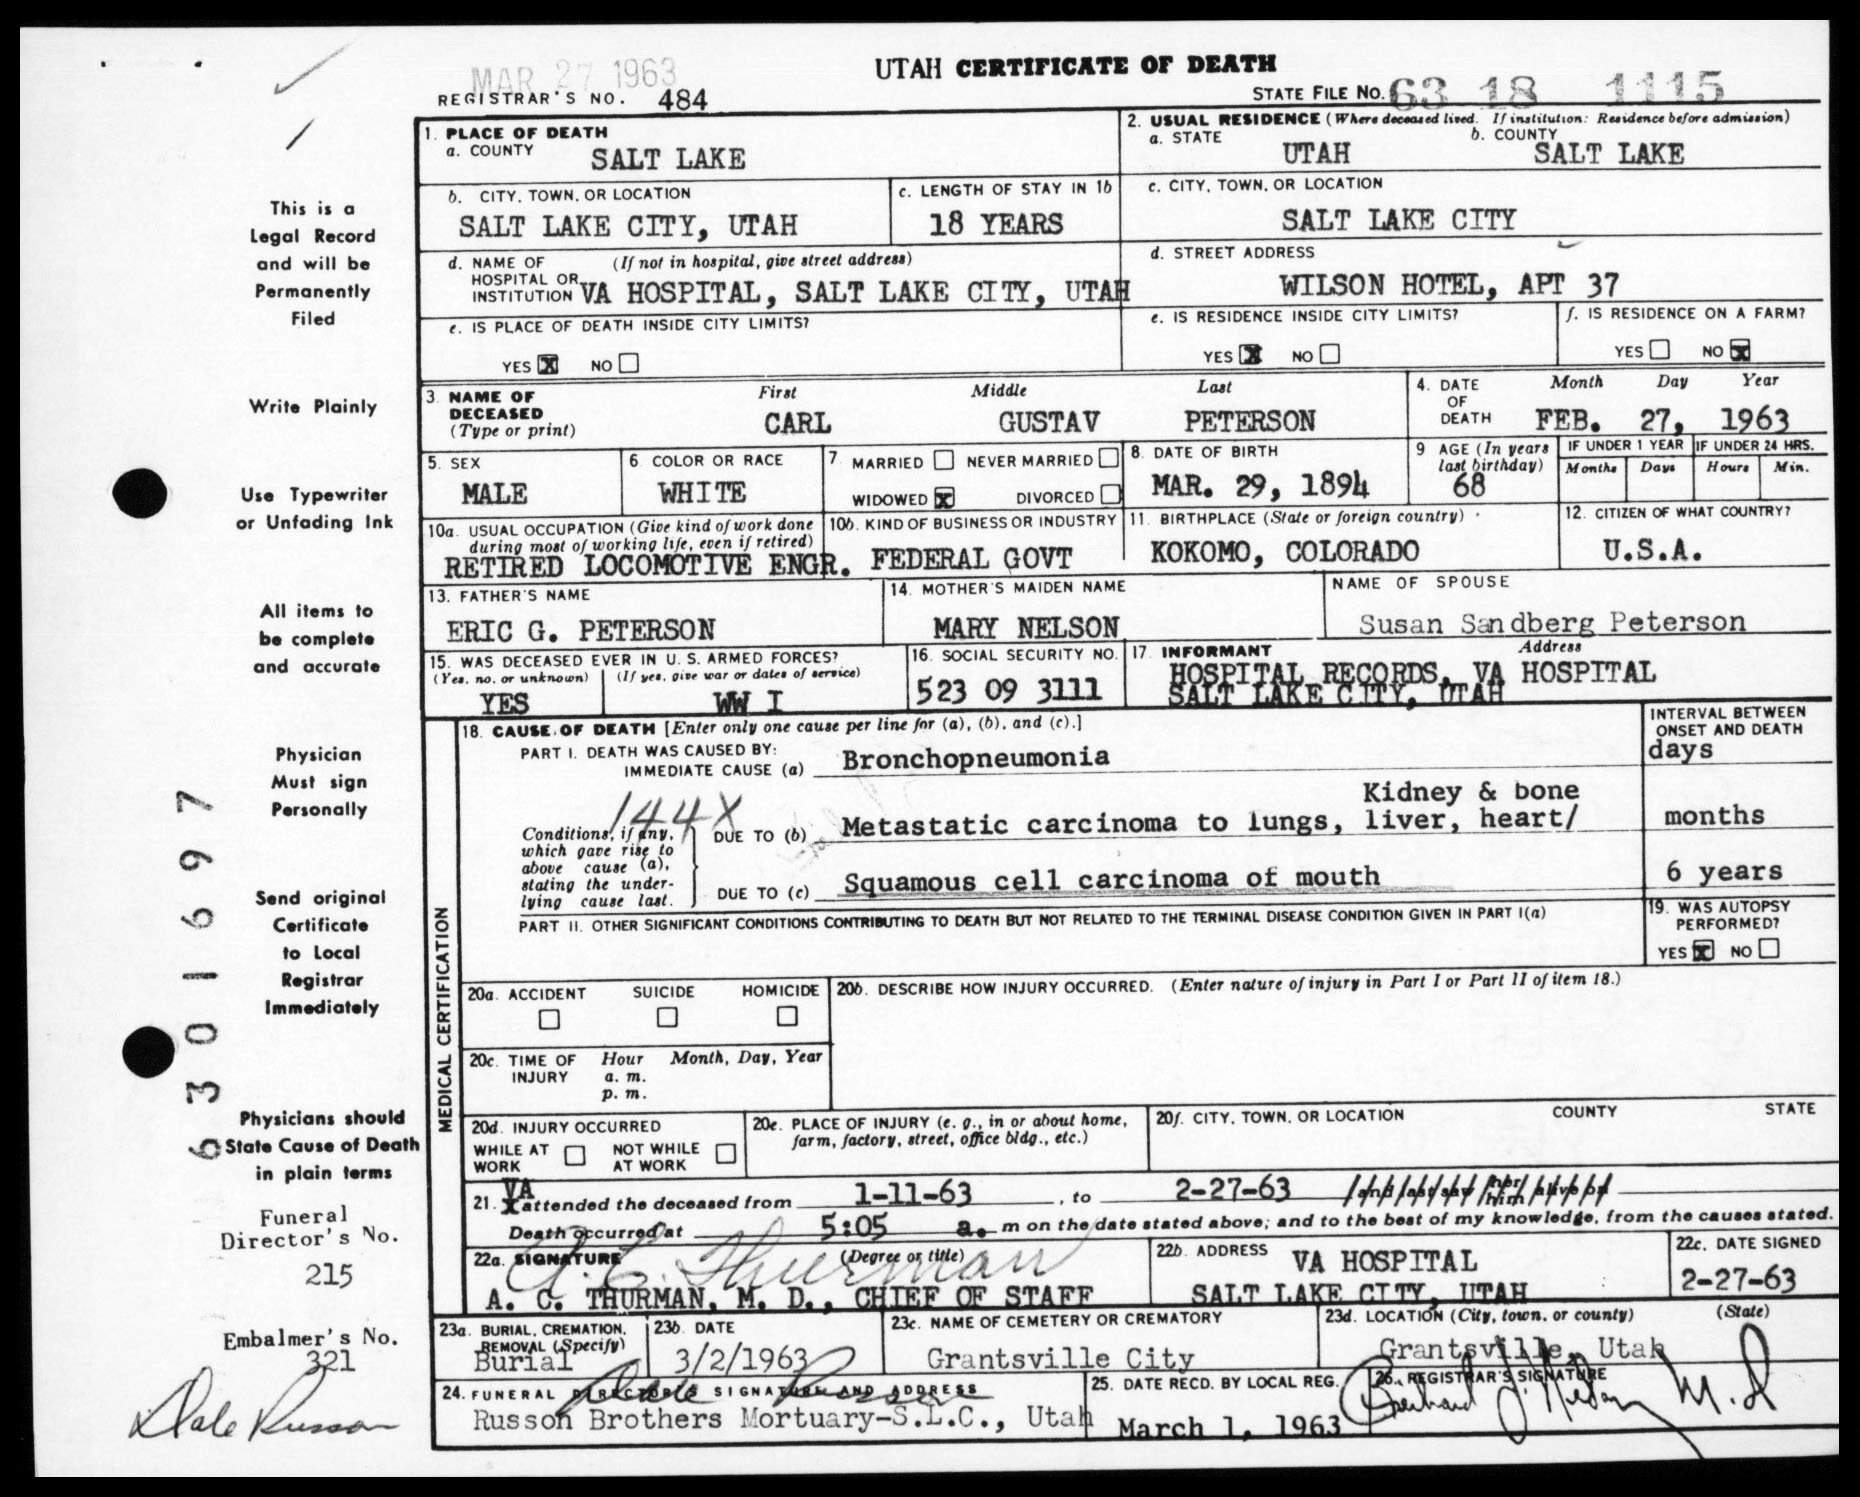 MAR 27 1963
UTAH CERTIFICATE OF DEATH
REGISTRAR'S NO. 484
STATE FILE NO. 63 18 1115
1. PLACE OF DEATH
a. COUNTY SALT LAKE
2. USUAL RESIDENCE (Where deceased lived. If institution: Residence before admission)
a. STATE UTAH b. COUNTY SALT LAKE
b. CITY, TOWN, OR LOCATION
SALT LAKE CITY, UTAH
c. LENGTH OF STAY IN 1b
18 YEARS
c. CITY, TOWN, OR LOCATION
SALT LAKE CITY
d. NAME OF HOSPITAL OR INSTITUTION (If not in hospital, give street address)
VA HOSPITAL, SALT LAKE CITY, UTAH
d. STREET ADDRESS
WILSON HOTEL, APT 37
e. IS PLACE OF DEATH INSIDE CITY LIMITS?
YES X NO
e. IS RESIDENCE INSIDE CITY LIMITS?
YES X NO
f. IS RESIDENCE ON A FARM?
YES NO X
3. NAME OF DECEASED (Type or print)
First Middle Last
CARL GUSTAV PETERSON
4. DATE OF DEATH
Month Day Year
FEB. 27, 1963
5. SEX
MALE
6. COLOR OR RACE
WHITE
7. MARRIED NEVER MARRIED
WIDOWED X DIVORCED
8. DATE OF BIRTH
MAR. 29, 1894
9 AGE (In years last birthday)
68
IF UNDER 1 YEAR
Months Days
IF UNDER 24 HRS.
Hours Min.
10a. USUAL OCCUPATION (Give kind of work done during most of working life, even if retired)
RETIRED LOCOMOTIVE ENGR.
10b. KIND OF BUSINESS OR INDUSTRY
FEDERAL GOVT
11. BIRTHPLACE (State or foreign country)
KOKOMO, COLORADO
12. CITIZEN OF WHAT COUNTRY?
U.S.A.
13. FATHER'S NAME
ERIC G. PETERSON
14. MOTHER'S MAIDEN NAME
MARY NELSON
NAME OF SPOUSE
Susan Sandberg Peterson
15. WAS DECEASED EVER IN U. S. ARMED FORCES?
(Yes, no, or unknown) (If yes, give war or dates of service)
YES WW I
16. SOCIAL SECURITY NO.
523 09 3111
17. INFORMANT Address
HOSPITAL RECORDS, VA HOSPITAL
SALT LAKE CITY, UTAH
MEDICAL CERTIFICATION
18. CAUSE OF DEATH [Enter only one cause per line for (a), (b), and (c).]
INTERVAL BETWEEN ONSET AND DEATH
PART I. DEATH WAS CAUSED BY:
IMMEDIATE CAUSE (a) Bronchopneumonia days
144X
Conditions, if any, which gave rise to above cause (a), stating the underlying cause last.
Kidney & bone
DUE TO (b) Metastatic carcinoma to lungs, liver, heart/ months
DUE TO (c) Squamous cell carcinoma of mouth 6 years
PART II. OTHER SIGNIFICANT CONDITIONS CONTRIBUTING TO DEATH BUT NOT RELATED TO THE TERMINAL DISEASE CONDITION GIVEN IN PART I(a)
19. WAS AUTOPSY PERFORMED?
YES X NO
20a. ACCIDENT SUICIDE HOMICIDE
20b. DESCRIBE HOW INJURY OCCURRED. (Enter nature of injury in Part I or Part II of item 18.)
20c. TIME OF INJURY Hour Month, Day, Year
a. m.
p. m.
20d. INJURY OCCURRED
WHILE AT WORK NOT WHILE AT WORK
20e. PLACE OF INJURY (e. g., in or about home, farm, factory, street, office bldg., etc.)
20f. CITY, TOWN, OR LOCATION COUNTY STATE
VA
21. I attended the deceased from 1-11-63, to 2-27-63 and last saw her him alive on
Death occurred at 5:05 a. m on the date stated above; and to the best of my knowledge, from the causes stated.
22a. SIGNATURE (Degree or title)
A. C. Thurman
A. C. THURMAN, M. D., CHIEF OF STAFF
22b. ADDRESS VA HOSPITAL
SALT LAKE CITY, UTAH
22c. DATE SIGNED
2-27-63
23a. BURIAL, CREMATION, REMOVAL (Specify)
Burial
23b. DATE
3/2/1963
23c. NAME OF CEMETERY OR CREMATORY
Grantsville City
23d. LOCATION (City, town, or county) (State)
Grantsville, Utah
24. FUNERAL DIRECTOR'S SIGNATURE AND ADDRESS
Dale Russon
Russon Brothers Mortuary-S.L.C., Utah
25. DATE RECD. BY LOCAL REG.
March 1, 1963
26. REGISTRAR'S SIGNATURE
M.D
This is a
Legal Record
and will be
Permanently
Filed
Write Plainly
Use Typewriter
or Unfading Ink
All items to
be complete
and accurate
Physician
Must sign
Personally
Send original
Certificate
to Local
Registrar
Immediately
Physicians should
State Cause of Death
in plain terms
6301697
Funeral
Director's No.
215
Embalmer's No.
321
Dale Russon